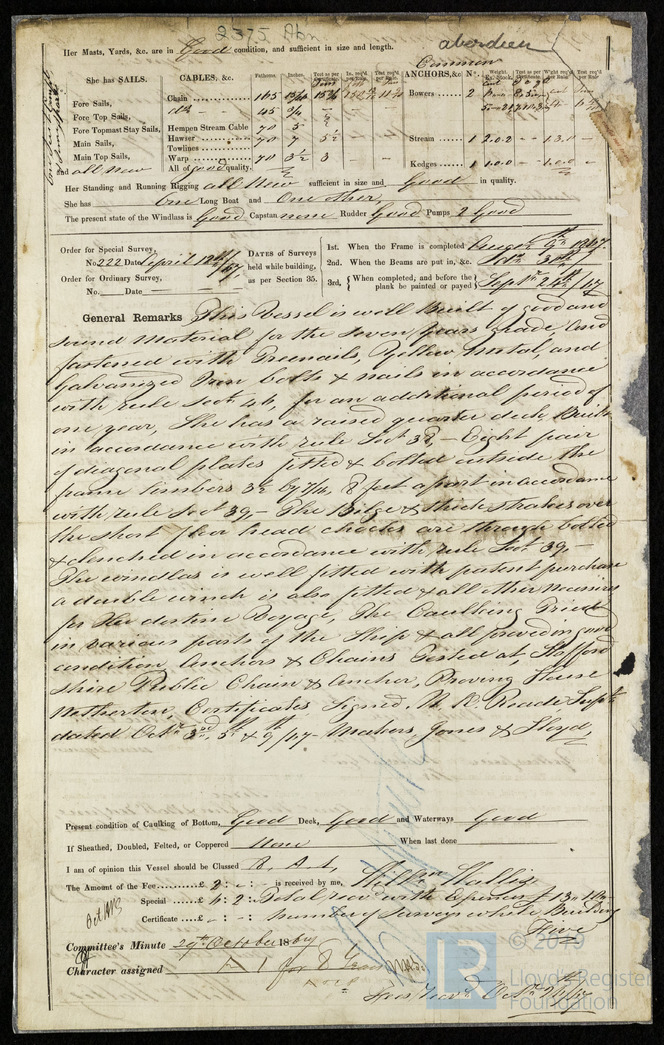 2375 Abn
aberdeen
Her Masts, Yards, &c. are in Good condition, and sufficient in size and length.
She has SAILS.
Fore Sails,
Fore Top Sails,
Fore Topmast Stay Sails,
Main Sails,
Main Top Sails,
and all new
CABLES, &c. Fathoms. Inches.
Chain 165
45 3/4
Hempen Stream Cable 70 5"
Hawser 70 7 5 1/2
Towlines
Warp 70 3 1/2 3
All of good quality.
Common
ANCHORS, &c. No.
Bowers 2
Stream 1 2.0.2 1.3.0
Kedges 1 1.0.0 1.0.0
Her Standing and Running Rigging all New sufficient in size and Good in quality.
She has One Long Boat and One other,
The present state of the Windlass is Good Capstan none Rudder Good Pumps 2 Good
Order for Special Survey,
No. 222 Date April 18th/67
Order for Ordinary Survey,
No. Date
DATES of Surveys
held while building,
as per Section 35.
1st. When the Frame is completed August 9th 1867.
2nd. When the Beams are put in, &c. Septr. 30th
3rd, { When completed, and before the
plank be painted or payed } Septr 24th/67
General Remarks This Vessel is well Built of good and
sound Material for the seven years grade and
fastened with Treenails, Yellow metal, and
Galvanized Iron bolts & nails in accordance
with rule Sect 46, for an additional period of
one year, She has a raised quarter deck Built
in accordance with rule Sect 32 - Eight pair
of diagonal plates fitted & bolted outside the
frame timbers 3 1/2 by 7/16, 8 feet apart in accordance
with rule Sect 39, - The Bilge & thick strakes over
the short floor head chocks are through bolted
& clenched in accordance with rule Sect. 39, -
The windlas is well fitted with patent purchase
a double winch is also fitted & all other necessaries
for her destine Voyage, The Caulking Tried
in various parts of the Ship & all proved in good
condition Anchors & Chains Tested at, Stafford
shire Public Chain & Anchor, Proving House
Netherton, Certificates Signed, N. K. Reade Supt.
dated Octr 3rd, 5th & 9th/67 - Makers, Jones & Lloyd,
Present condition of Caulking of Bottom, Good Deck, Good and Waterways Good
If Sheathed, Doubled, Felted, or Coppered None When last done
I am of opinion this Vessel should be Classed 8, A, 1,
The Amount of the Fee £ 2 : - : - is received by me, Willm Wallis
Special £ : 2 : Total recd with Expenses
Certificate £ - : - number of Surveys while Building
Five
Committee's Minute 29th October 1867
Character assigned A 1 for 8 Years
© 2019
Lloyd's Register
Foundation